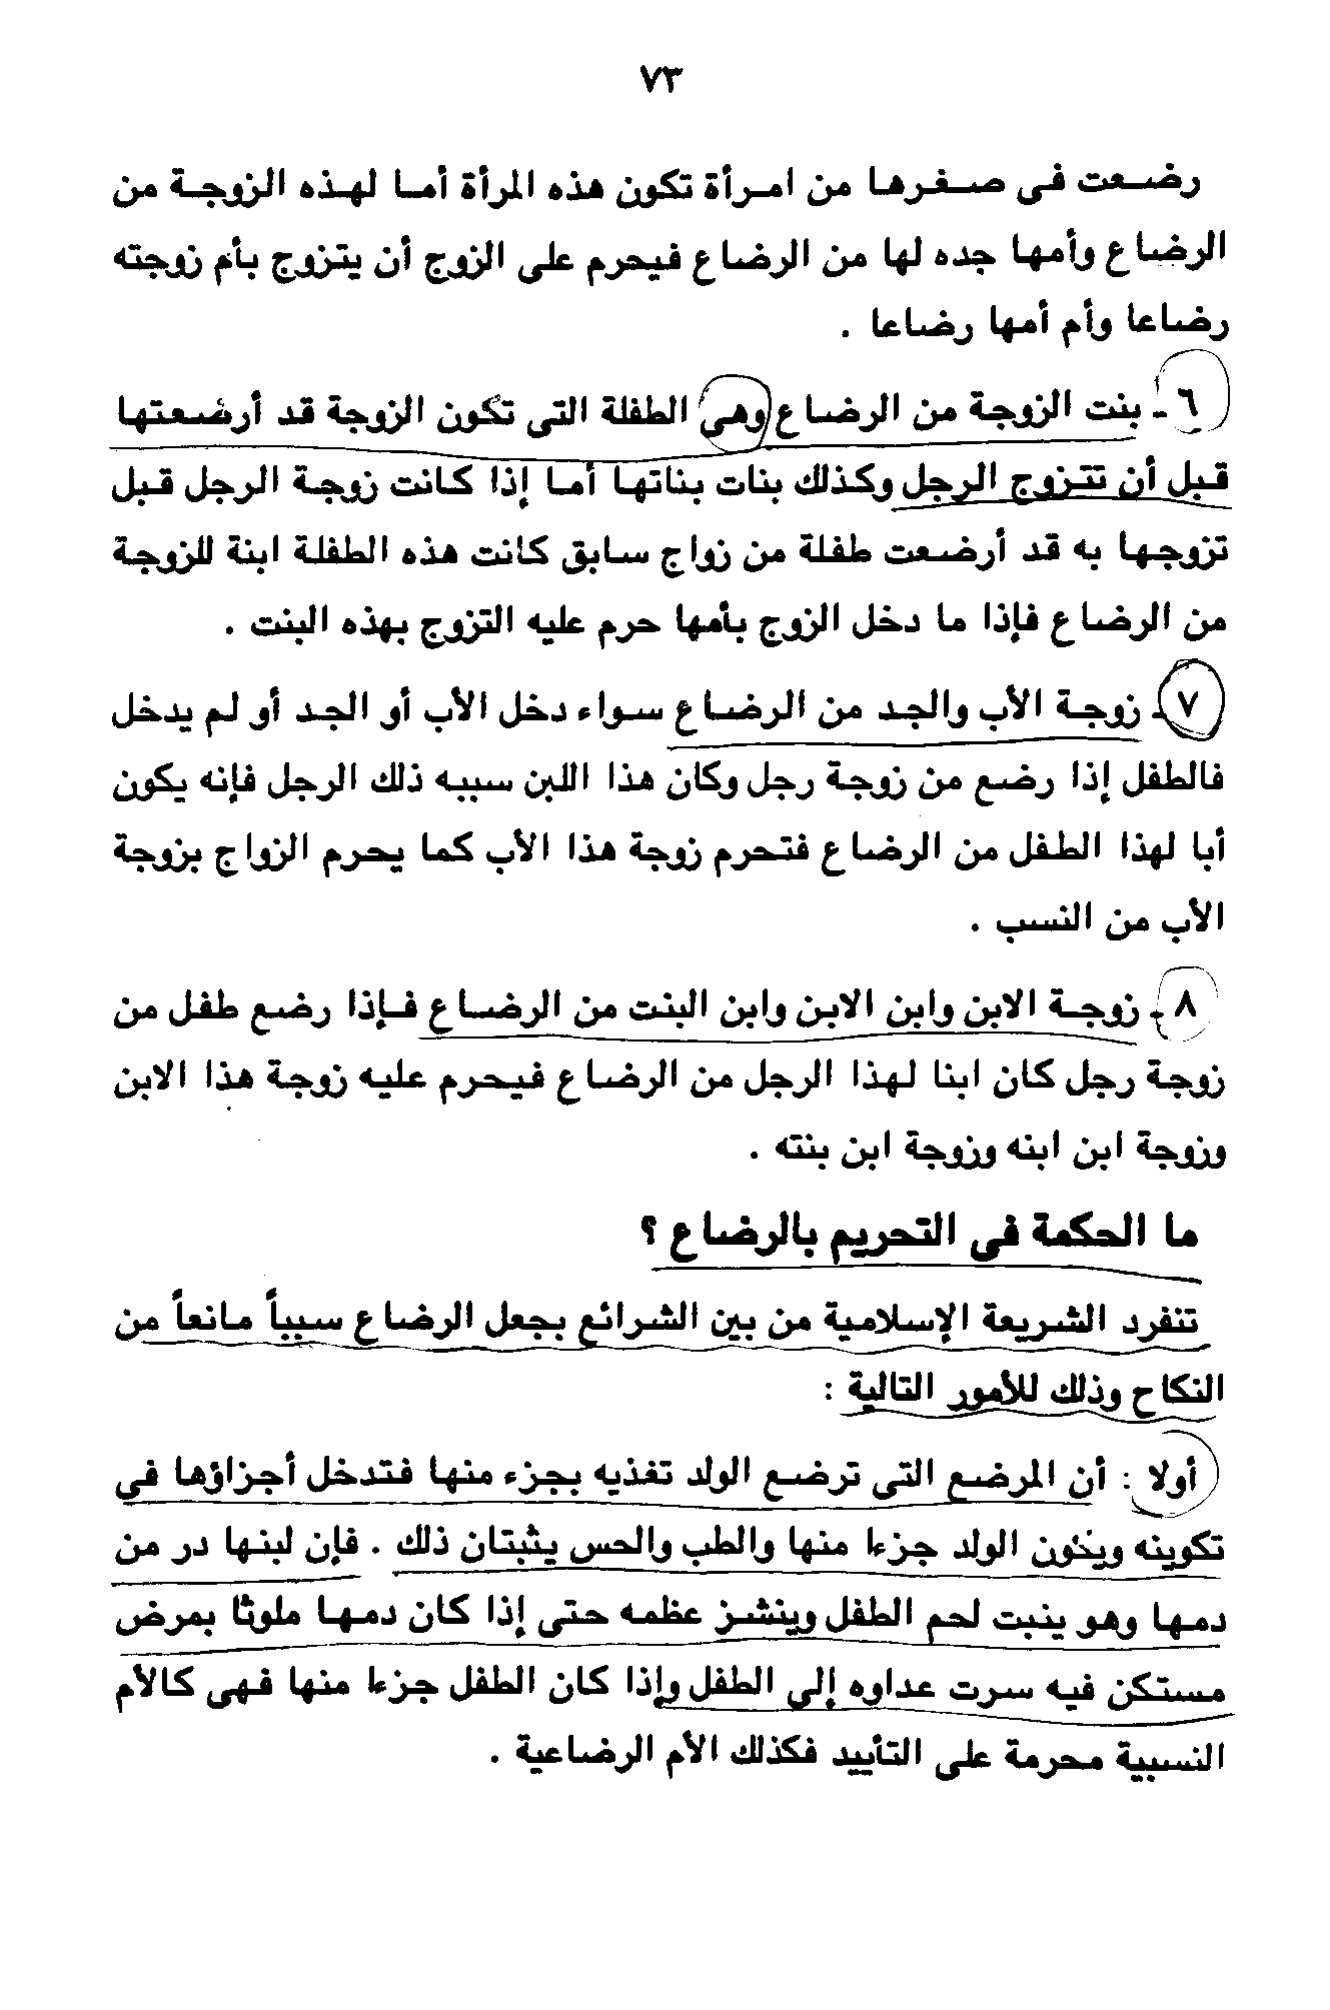 ٧٣
رضعت فى صغرها من امرأة تكون هذه المرأة أما لهذه الزوجة من
الرضاع وأمها جده لها من الرضاع فيحرم على الزوج أن يتزوج بأم زوجته
رضاعا وأم أمها رضاعا .
٦ ـ بنت الزوجة من الرضاع وهى الطفلة التى تكون الزوجة قد أرضعتها
قبل أن تتزوج الرجل وكذلك بنات بناتها أما إذا كانت زوجة الرجل قبل
تزوجها به قد أرضعت طفلة من زواج سابق كانت هذه الطفلة ابنة للزوجة
من الرضاع فإذا ما دخل الزوج بأمها حرم عليه التزوج بهذه البنت .
٧ ـ زوجة الأب والجد من الرضاع سواء دخل الأب أو الجد أو لم يدخل
فالطفل إذا رضع من زوجة رجل وكان هذا اللبن سببه ذلك الرجل فإنه يكون
أبا لهذا الطفل من الرضاع فتحرم زوجة هذا الأب كما يحرم الزواج بزوجة
الأب من النسب .
٨ ـ زوجة الابن وابن الابن وابن البنت من الرضاع فإذا رضع طفل من
زوجة رجل كان ابنا لهذا الرجل من الرضاع فيحرم عليه زوجة هذا الابن
وزوجة ابن ابنه وزوجة ابن بنته .
ما الحكمة فى التحريم بالرضاع ؟
تنفرد الشريعة الإسلامية من بين الشرائع بجعل الرضاع سبباً مانعاً من
النكاح وذلك للأمور التالية :
أولا : أن المرضع التى ترضع الولد تغذيه بجزء منها فتدخل أجزاؤها فى
تكوينه ويكون الولد جزءا منها والطب والحس يثبتان ذلك . فإن لبنها در من
دمها وهو ينبت لحم الطفل وينشز عظمه حتى إذا كان دمها ملوثا بمرض
مستكن فيه سرت عداوه إلى الطفل وإذا كان الطفل جزءا منها فهى كالأم
النسبية محرمة على التأبيد فكذلك الأم الرضاعية .